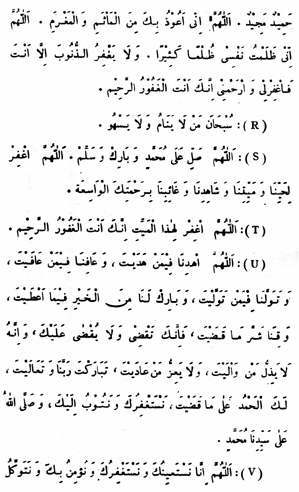 حَمِيْدٌ مَجِيْدٌ . اَللّٰهُمَّ اِنِّى اَعُوْذُ بِكَ مِنَ الْمَأْثَمِ وَالْمَغْرَمِ . اَللّٰهُمَّ
اِنِّى ظَلَمْتُ نَفْسِىْ ظُلْمًا كَثِيْرًا . وَ لَا يَغْفِرُ الذُّنُوْبَ اِلَّا اَنْتَ
فَاغْفِرْلِى وَ ارْحَمْنِى اِنَّكَ اَنْتَ الْغَفُوْرُ الرَّحِيْمِ .
(R) : سُبْحَانَ مَنْ لَا يَنَامُ وَ لَا يَسْهُو .
(S) : اَللّٰهُمَّ صَلِّ عَلٰى مُحَمَّدٍ وَ بَارِكْ وَ سَلِّمْ . اَللّٰهُمَّ اغْفِرْ
لِحَيِّنَا وَ مَيِّتِنَا وَ شَاهِدِنَا وَ غَائِبِنَا بِرَحْمَتِكَ الْوَاسِعَةِ .
(T) : اَللّٰهُمَّ اغْفِرْ لِهٰذَا الْمَيِّتِ اِنَّكَ اَنْتَ الْغَفُوْرُ الرَّحِيْمِ .
(U) : اَللّٰهُمَّ اهْدِنَا فِيْمَنْ هَدَيْتَ ، وَ عَافِنَا فِيْمَنْ عَافَيْتَ ،
وَ تَوَلَّنَا فِيْمَنْ تَوَلَّيْتَ ، وَ بَارِكْ لَنَا مِنَ الْخَيْرِ فِيْمَا اَعْطَيْتَ ،
وَ قِنَا شَرَّ مَا قَضَيْتَ ، فَاِنَّكَ تَقْضِىْ وَ لَا يُقْضٰى عَلَيْكَ ، وَ اِنَّهُ
لَا يَذِلُّ مَنْ وَالَيْتَ ، وَ لَا يَعِزُّ مَنْ عَادَيْتَ ، تَبَارَكْتَ رَبَّنَا وَ تَعَالَيْتَ ،
لَكَ الْحَمْدُ عَلٰى مَا قَضَيْتَ ، نَسْتَغْفِرُكَ وَ نَتُوْبُ اِلَيْكَ ، وَ صَلَّى اللّٰهُ
عَلٰى سَيِّدِنَا مُحَمَّدٍ .
(V) : اَللّٰهُمَّ اِنَّا نَسْتَعِيْنُكَ وَ نَسْتَغْفِرُكَ وَ نُؤْمِنُ بِكَ وَ نَتَوَكَّلُ